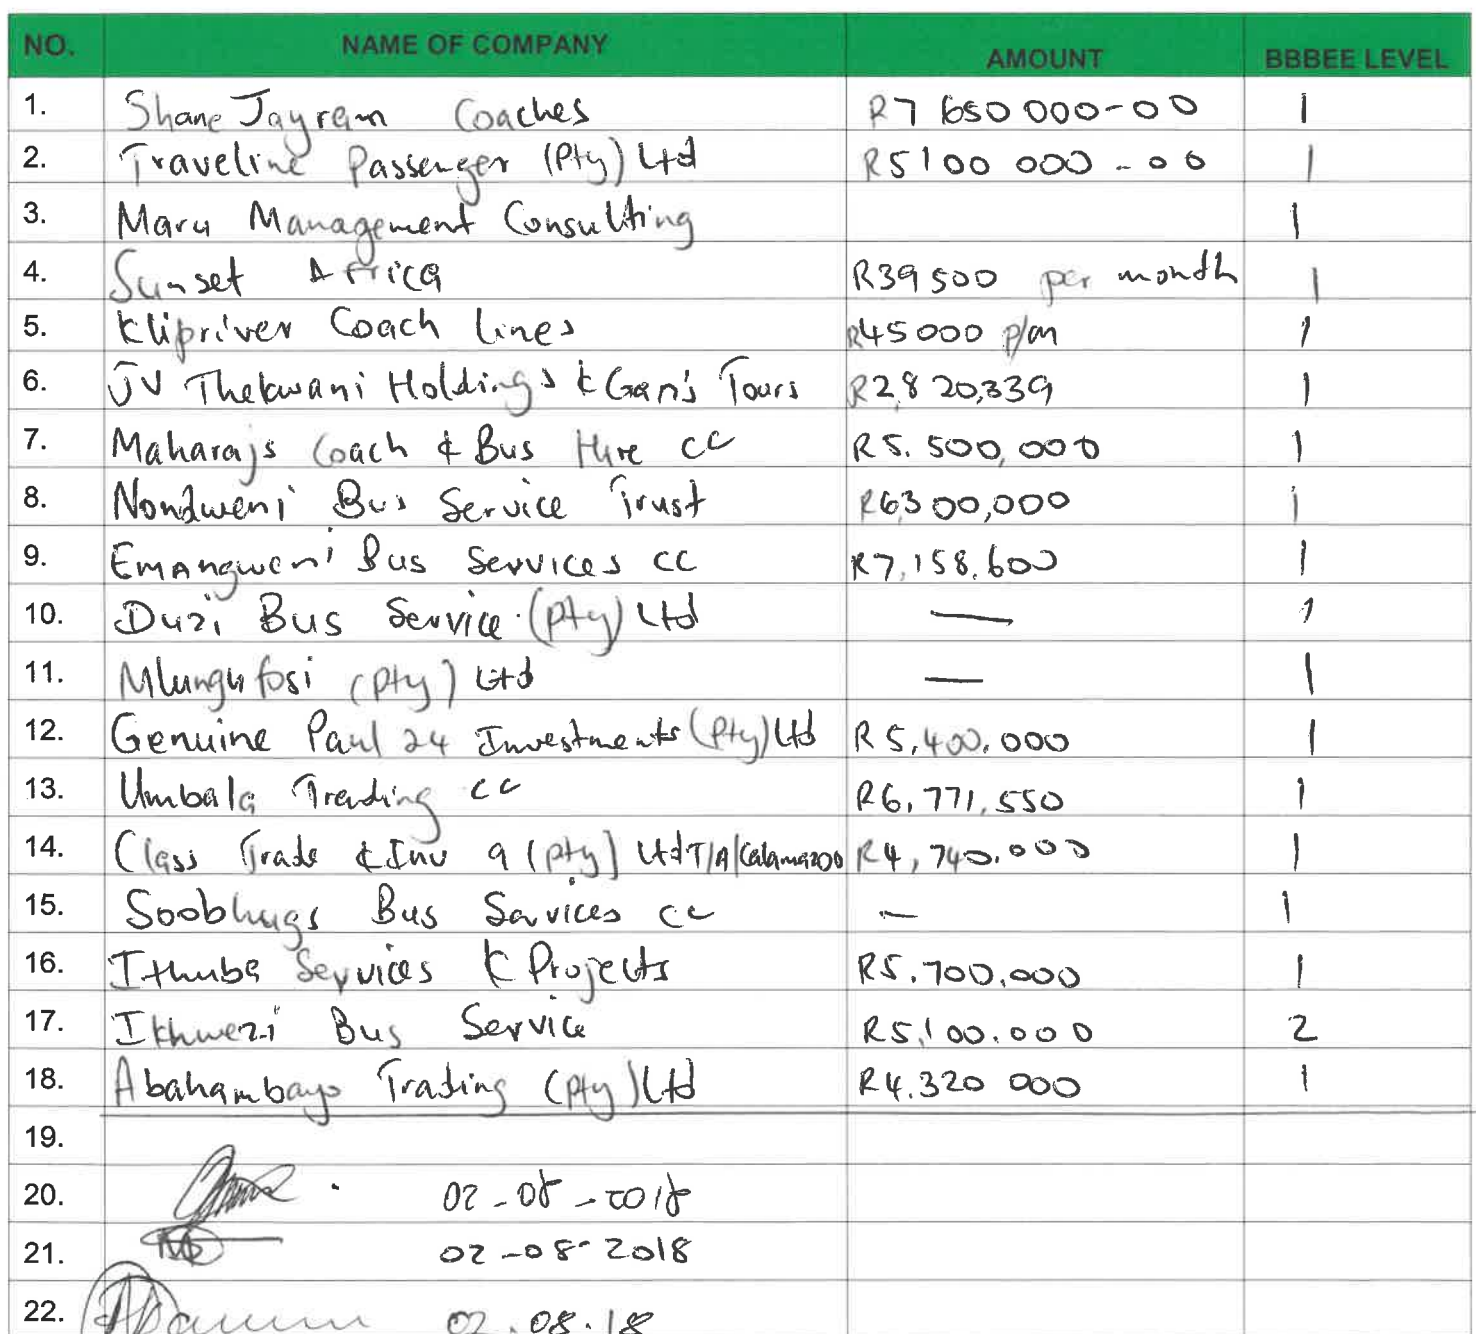 NO. NAME OF COMPANY AMOUNT BBBEE LEVEL
1. Shane Jayram Coaches R7 650 000-00 1
2. Traveline Passenger (Pty) Ltd R5100 000-00 1
3. Maru Management Consulting 1
4. Sunset Africa R39500 per month 1
5. Klipriver Coach Lines R45000 p/m 1
6. JV Thekwani Holdings & Gan's Tours R2,820,339 1
7. Maharajs Coach & Bus Hire CC R5.500,000 1
8. Nondweni Bus Service Trust R6300,000 1
9. Emangweni Bus Services CC R7,158,600 1
10. Duzi Bus Service (Pty) Ltd — 1
11. Mlungufosi (Pty) Ltd — 1
12. Genuine Paul 24 Investments (Pty) Ltd R5,400.000 1
13. Umbala Trading CC R6,771,550 1
14. Class Trade & Inv 9 (Pty) Ltd T/A Calamazoo R4,740.000 1
15. Soobhugs Bus Services CC — 1
16. Ithuba Services & Projects R5.700.000 1
17. Ikhwezi Bus Service R5,100.000 2
18. Abahambayo Trading (Pty) Ltd R4.320 000 1
19.
20. 02-08-2018
21. 02-08-2018
22. 02.08.18